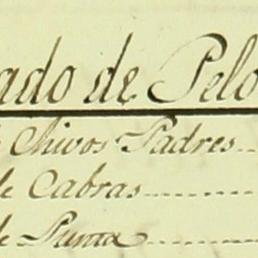 ado de Pelo
Chivos Padres
de Cabras
de Punta